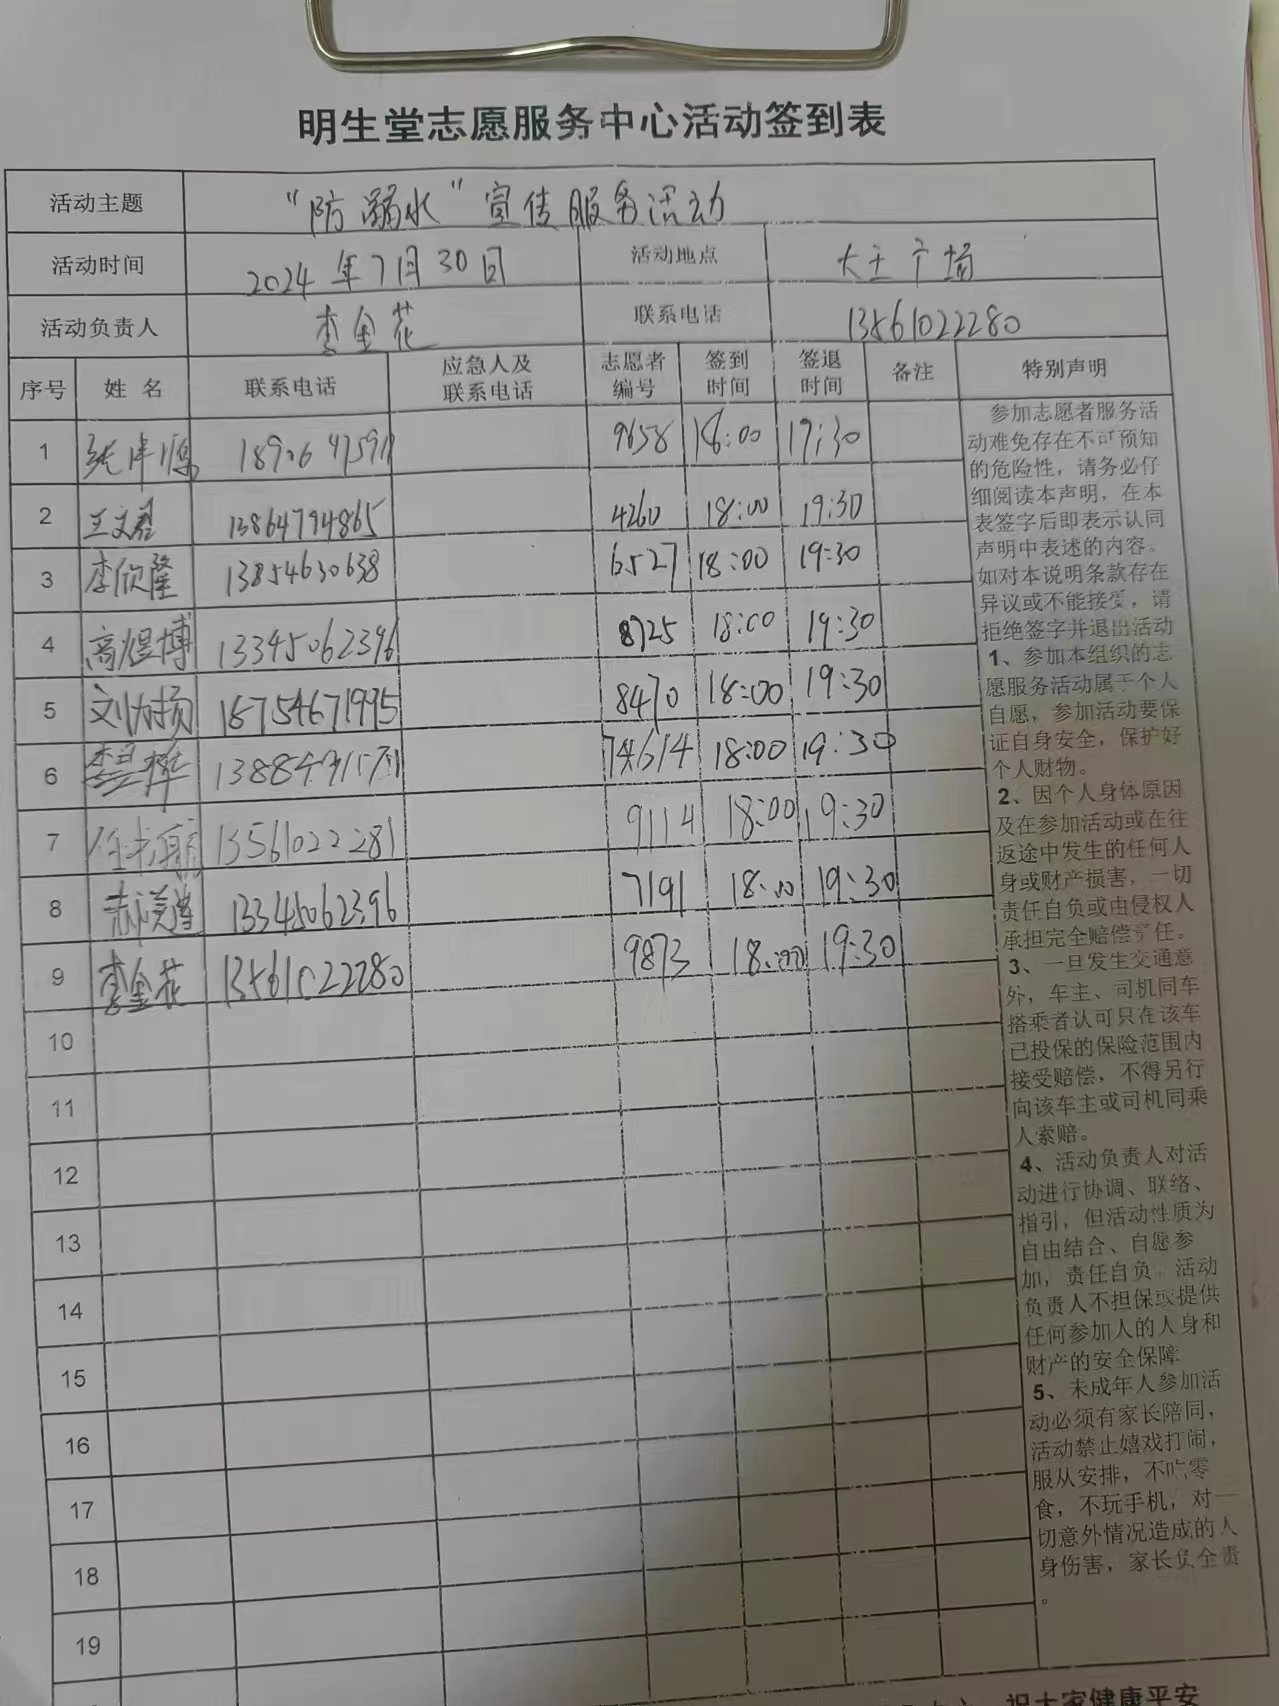 明生堂志愿服务中心活动签到表
活动主题 “防溺水”宣传服务活动
活动时间 2024年7月30日 活动地点 大王广场
活动负责人 李金花 联系电话 13561022280
序号 姓名 联系电话 应急人及联系电话 志愿者编号 签到时间 签退时间 备注 特别声明
1 9658 18:00 19:30
2 王文君 13864794865 4260 18:00 19:30
3 李欣隆 13854630638 6527 18:00 19:30
4 高煜博 13345062396 8725 18:00 19:30
5 18754671995 8470 18:00 19:30
6 74614 18:00 19:30
7 13561022281 9114 18:00 19:30
8 13345062396 7191 18:00 19:30
9 李金花 13561022280 9873 18:00 19:30
10
11
12
13
14
15
16
17
18
19
参加志愿者服务活
动难免存在不可预知
的危险性，请务必仔
细阅读本声明，在本
表签字后即表示认同
声明中表述的内容。
如对本说明条款存在
异议或不能接受，请
拒绝签字并退出活动
1、参加本组织的志
愿服务活动属于个人
自愿，参加活动要保
证自身安全，保护好
个人财物。
2、因个人身体原因
及在参加活动或在往
返途中发生的任何人
身或财产损害，一切
责任自负或由侵权人
承担完全赔偿责任。
3、一旦发生交通意
外，车主、司机同车
搭乘者认可只在该车
已投保的保险范围内
接受赔偿，不得另行
向该车主或司机同乘
人索赔。
4、活动负责人对活
动进行协调、联络、
指引，但活动性质为
自由结合、自愿参
加，责任自负。活动
负责人不担保或提供
任何参加人的人身和
财产的安全保障.
5、未成年人参加活
动必须有家长陪同，
活动禁止嬉戏打闹，
服从安排，不吃零
食，不玩手机，对一
切意外情况造成的人
身伤害，家长负全责
。
祝大家健康平安